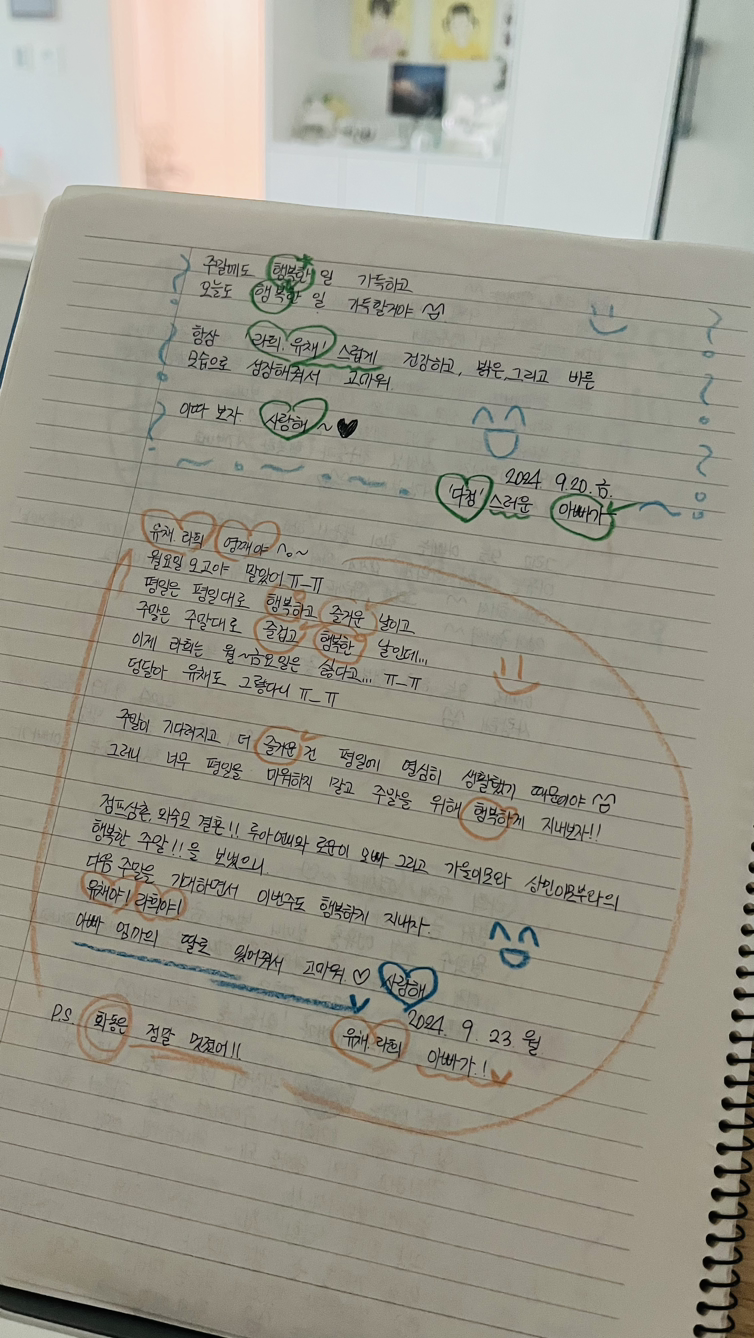 주말에도 행복한 일 가득하고
오늘도 행복한 일 가득할거야 ^^
항상 라희, 유채! 스럽게 건강하고, 밝은, 그리고 바른
모습으로 성장해줘서 고마워
이따 보자. 사랑해 ~ ♥
2024 9.20.금.
'다정'스러운 아빠가
유채 라희 영께야 ^o~
월요일 오고야 말았어 ㅠ_ㅠ
평일은 평일대로 행복하고 즐거운 날이고
주말은 주말대로 즐겁고 행복한 날인데...
이제 라희는 월~금요일은 싫다고... ㅠ_ㅠ
덩달아 유채도 그렇다니 ㅠ_ㅠ
주말이 기다려지고 더 즐거운 건 평일에 열심히 생활했기 때문이야 ^^
그러니 너무 평일을 미워하지 말고 주말을 위해 행복하게 지내보자!!
점프삼촌, 외숙모 결혼!! 루아언니와 로운이 오빠 그리고 가을이모와 상민이모부와의
행복한 주말!!을 보냈으니.
다음 주말을 기대하면서 이번주도 행복하게 지내자.
유채야! 라희야!
아빠 엄마의 딸로 있어줘서 고마워 ♡ 사랑해
2024. 9. 23 월
유채 라희 아빠가!
P.S. 화동은 정말 멋졌어!!